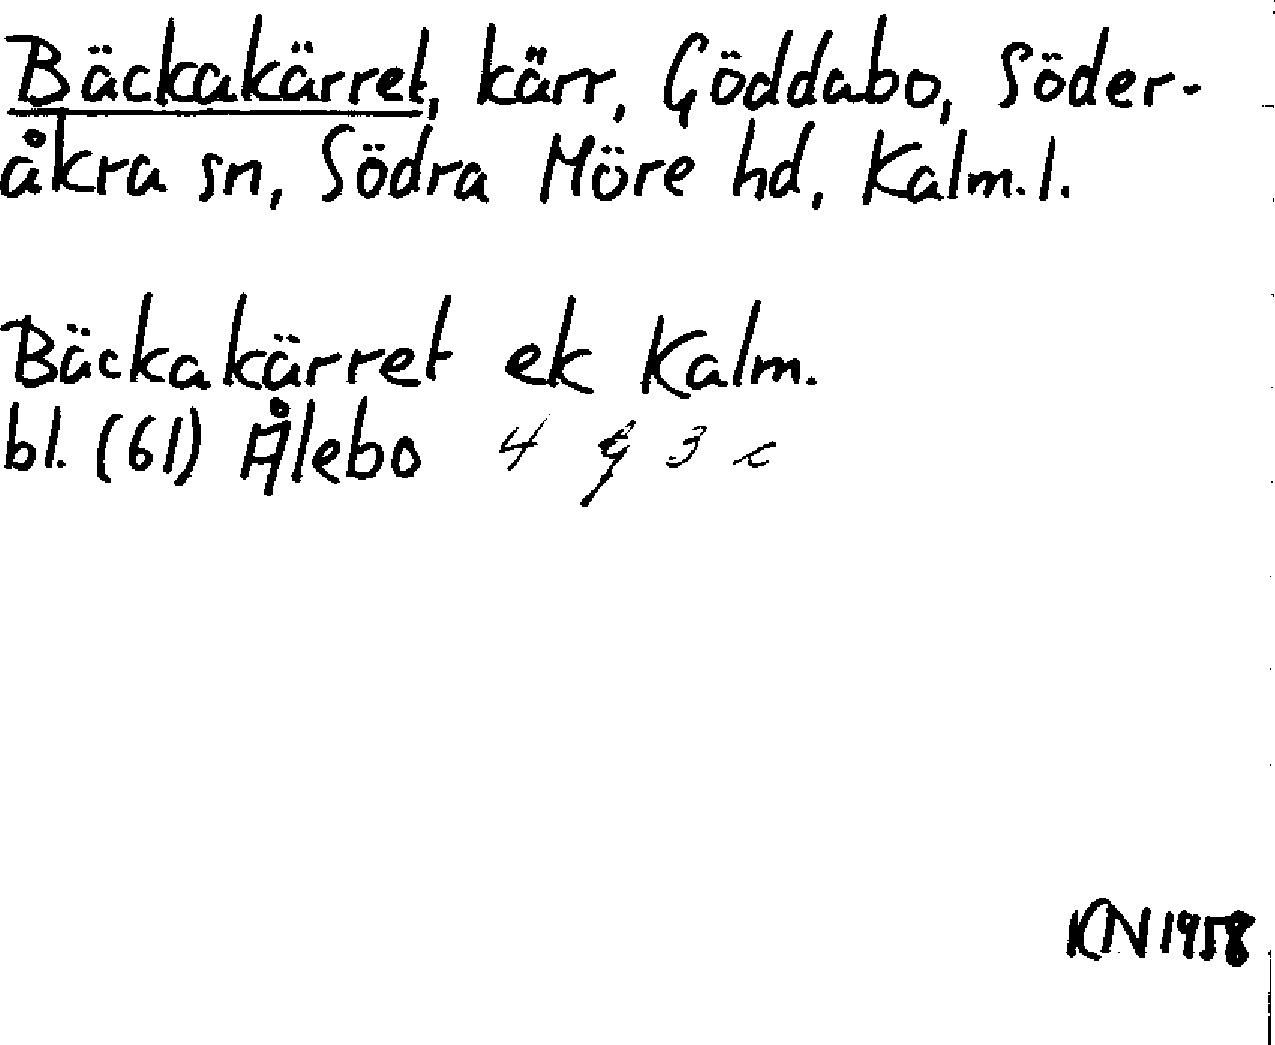 Bäckakärret, kärr, Göddabo, Söder-
åkra sn, Södra Möre hd, Kalm. l.
Bäckakärret ek Kalm.
bl. (61) Ålebo 4 g 3 c
KN 1958